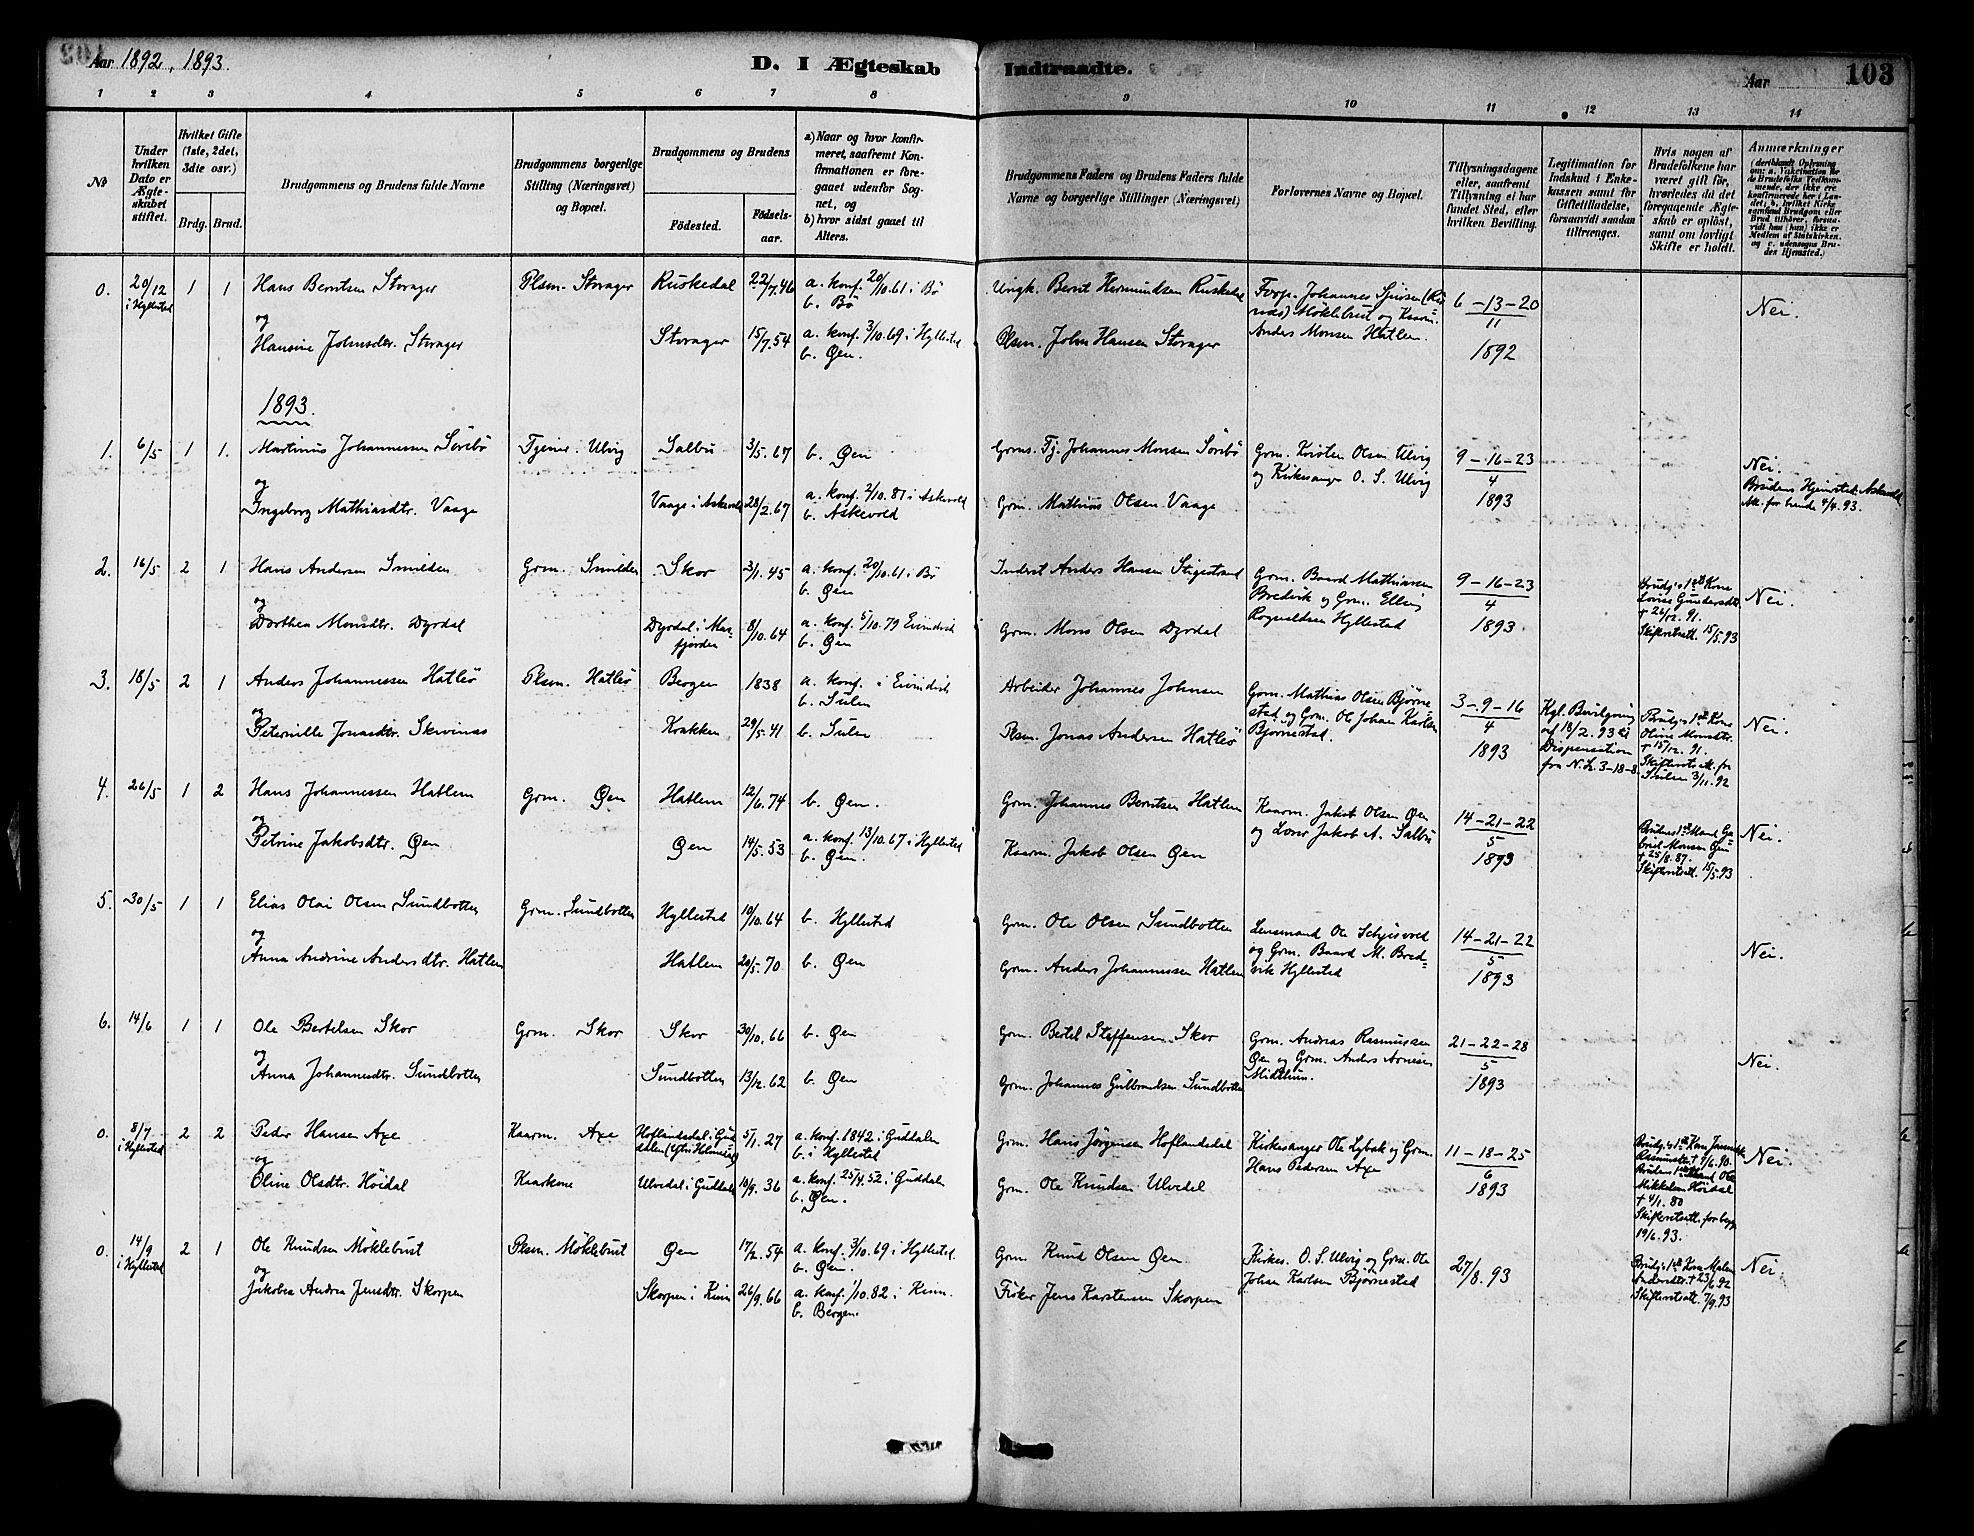 Aar 1892, 1893.
D. I Ægteskab
Indtraadte.
Aar
103
1 2 3 4 5 6 7 8 9 10 11 12 13 14
No
Under hvilken Dato er Ægteskabet stiftet.
Hvilket Gifte (1ste, 2det, 3dte osv.)
Brdg. Brud.
Brudgommens og Brudens fulde Navne
Brudgommens borgerlige Stilling (Næringsvei) og Bopæl.
Brudgommens og Brudens
Födested.
Födsels-aar.
a) Naar og hvor konfirmeret, saafremt Konfirmationen er foregaaet udenfor Sognet, og
b) hvor sidst gaaet til Alters.
Brudgommens Faders og Brudens Faders fulde Navne og borgerlige Stillinger (Næringsvei)
Forlovernes Navne og Bopæl.
Tillysningsdagene eller, saafremt Tillysning ei har fundet Sted, efter hvilken Bevilling.
Legitimation for Indskud i Enkekassen samt for Giftetilladelse, forsaavidt saadan tiltrænges.
Hvis nogen af Brudefolkene har været gift før, hvorledes da det foregaaende Ægteskab er opløst, samt om lovligt Skifte er holdt.
Anmærkninger
(deriblandt Oplysning om: a. Vaksination for de Brudefolks Vedkommende, der ikke ere konfirmerede her i Landet; b. hvilket Kirkesamfund Brudgom eller Brud tilhører, forsaavidt han (hun) ikke er Medlem af Statskirken, og c. udensogns Brudes Hjemsted.)
0. 20/12 i Hyllestad 1 1 Hans Berntsen Storager Plsm. Storager Ruskedal 22/7.46 a. konf. 20/10.61 i Bö
b. Bö
Bernt Hermundsen Ruskedal
Johannes Möklebust og Kaarm. Anders Monsen Hatlem.
6-13-20
11
1892
Nei.
og
Hansine Johnsdtr. Storager Storager 15/7.54 a. konf. 3/10.69 i Hyllestad
b. Øen.
Plsm. John Hansen Storager
1893.
1. 6/5 1 1. Martinus Johannessen Sörebö Tjener. Ulvig Salbu 3/5.67 b. Øen
Grms. Tj. Johannes Monsen Sörebö
Grm. Kristen Olsen Ulvig og Kirkesanger O. S. Ulvig
9-16-23
4
1893
Nei.
Brudens Hjemsted Askevold
Att. for hende 4/4.93.
og
Ingeborg Mathiasdtr. Vaage Vaage i Askevold 28/2.67 a. konf. 2/10.81 i Askevold
b. Askevold
Grm. Mathias Olsen Vaage
2. 16/5 2 1 Hans Andersen Smilden Grm. Smilden Skor 3/1.45 a. konf. 20/10.61 i Bö
b. Øen
Inderst Anders Hansen Stigestrand
Grm. Baard Mathiassen Bredvik og Grm. Elling Rognaldsen Hyllestad
9-16-23
4
1893.
Brudg.s 1ste Kone Lovise Gundersdtr. + 26/12.91.
Skifteretsatt. 15/5.93
Nei.
og
Dorthea Monsdtr. Dyrdal Dyrdal i Masfjorden 8/10.64 a. konf. 5/10.79 Eivindvik
b. Øen
Grm. Mons Olsen Dyrdal
3. 18/5 2 1 Anders Johannessen Hatlö Plsm. Hatlö Bergen 1838 a. konf. i Eivindvik
b. Sulen
Arbeider Johannes Johnsen
Grm. Mathias Olsen Bjørnestad og Grm. Ole Johan Karlsen Bjørnestad.
3-9-16
4
1893
Kgl. Bevilgning af 18/2.93 til Dispensation fra N. L. 3-18-8.
Brudg.s 1ste Kone Oline Monsdtr. + 15/12.91.
Skifterets Att. fr Sulen 3/11.92
Nei.
og
Peternille Jonasdtr. Skivenes Krakken 29/5.41 b. Sulen
Plsm. Jonas Andersen Hatlö
4. 26/5 1 2 Hans Johannessen Hatlem Grm. Øen Hatlem 12/6.74 b. Øen.
Grm. Johannes Berntsen Hatlem
Kaarm. Jakob Olsen Øen og Jakob A. Salbu
14-21-22
5
1893
Brudens 1ste Mand Gabriel Monsen Øen + 25/8.87.
Skifteretsatt. 15/5.93
Nei.
og
Petrine Jakobsdtr. Øen Øen 14/5.53 a. konf. 13/10.67 i Hyllestad
b. Øen.
Kaarm. Jakob Olsen Øen
5. 30/5 1 1 Elias Olai Olsen Sundbotten Grm. Sundbotten Hyllestad 10/10.64 b. Hyllestad
Grm. Ole Olsen Sundbotten
Lensmand Ole og Grm. Baard M. Bredvik Hyllestad
14-21-22
5
1893
Nei.
og
Anna Andrine Andersdtr. Hatlem Hatlem 20/5.70 b. Øen
Grm. Anders Johannessen Hatlem
6. 14/6 1 1 Ole Bertelsen Skor Grm. Skor Skor 30/10.66 b. Øen
Grm. Bertel Steffensen Skor
Grm. Andreas Rasmussen Øen og Grm. Anders Arnesen Midthun.
21-22-28
5
1893
Nei.
og
Anna Johannesdtr. Sundbotten Sundbotten 13/12.62 b. Øen
Grm. Johannes Gulbrandsen Sundbotten
0. 8/7 i Hyllestad 2 2 Peder Hansen Axe Kaarm. Axe Hoflandsdal i Guddalen 5/1.27 a. konf. 1842 i Guddalen
b. i Hyllestad
Grm. Hans Jörgensen Hoflandsdal
Kirkesanger Ole Lybak og Grm. Hans Pedersen Axe
11-18-25
6
1893
Brudg.s 1ste Kone Rasmusdtr + 9/6.90.
Brudens 1ste Mand Ole Mikkelsen Höidal + 4/1.80
Skifteretsatt. for begge 19/6.93.
Nei.
og
Oline Olsdtr. Höidal Kaarkone Ulvedal i Guddalen 10/9.36 a. konf. 25/4.52 i Guddalen
b. Øen.
Grm. Ole Knudsen Ulvedal
0. 14/9 i Hyllestad 2 1 Ole Knudsen Möklebust Plsm. Möklebust Øen 17/2.54 a. konf. 3/10.69 i Hyllestad.
b. Øen.
Grm. Knud Olsen Øen
Kirkes. O. S. Ulvig og Grm. Ole Johan Karlsen Bjørnestad
27/8.93
Brudg.s 1ste Kone Malene Andersdtr. + 23/6.92
Skifteretsatt. 7/9.93
Nei.
og
Jakobea Andrea Jensdtr. Skorpen Skorpen i Kinn 26/9.66 a. konf. 1/10.82 i Kinn.
b. Bergen.
Fisker Jens Karstensen Skorpen